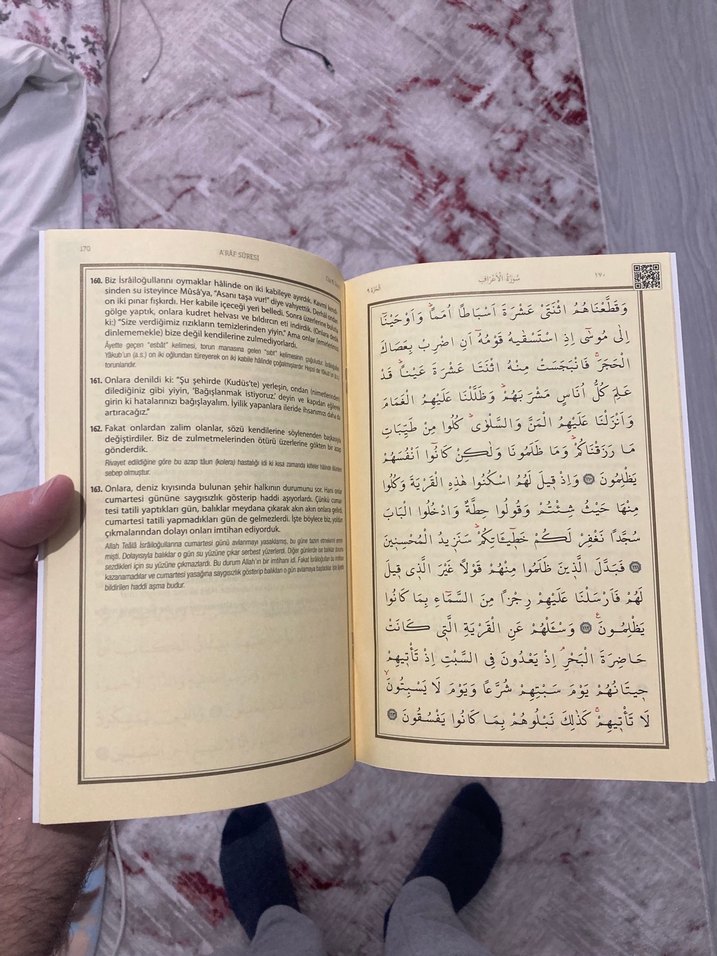 170
A'RÂF SÛRESİ
160. Biz İsrâiloğullarını oymaklar hâlinde on iki kabileye ayırdık. Kavmi kendi-
sinden su isteyince Mûsâ'ya, "Asanı taşa vur!" diye vahyettik. Derhâl ondan
on iki pınar fışkırdı. Her kabile içeceği yeri belledi. Sonra üzerlerine bulutla
gölge yaptık, onlara kudret helvası ve bıldırcın eti indirdik. (Onlara dedik
ki:) "Size verdiğimiz rızıkların temizlerinden yiyin." Ama onlar (emirlerimizi
dinlememekle) bize değil kendilerine zulmediyorlardı.
Âyette geçen "esbât" kelimesi, torun manasına gelen "sıbt" kelimesinin çoğuludur. İsrâiloğulları
Yâkub'un (a.s.) on iki oğlundan türeyerek on iki kabile hâlinde çoğalmışlardır. Hepsi de Yâkub'un (a.s.)
torunlarıdır.
161. Onlara denildi ki: "Şu şehirde (Kudüs'te) yerleşin, ondan (nimetlerinden)
dilediğiniz gibi yiyin, 'Bağışlanmak istiyoruz.' deyin ve kapıdan eğilerek
girin ki hatalarınızı bağışlayalım. İyilik yapanlara ileride ihsanımızı daha da
artıracağız."
162. Fakat onlardan zalim olanlar, sözü kendilerine söylenenden başkasıyla
değiştirdiler. Biz de zulmetmelerinden ötürü üzerlerine gökten bir azap
gönderdik.
Rivayet edildiğine göre bu azap tâun (kolera) hastalığı idi ki kısa zamanda kitleler hâlinde ölümlere
sebep olmuştur.
163. Onlara, deniz kıyısında bulunan şehir halkının durumunu sor. Hani onlar
cumartesi gününe saygısızlık gösterip haddi aşıyorlardı. Çünkü cumar-
tesi tatili yaptıkları gün, balıklar meydana çıkarak akın akın onlara gelirdi,
cumartesi tatili yapmadıkları gün de gelmezlerdi. İşte böylece biz, yoldan
çıkmalarından dolayı onları imtihan ediyorduk.
Allah Teâlâ İsrâiloğullarına cumartesi günü avlanmayı yasaklamış, bu güne tazim etmelerini emret-
mişti. Dolayısıyla balıklar o gün su yüzüne çıkar serbest yüzerlerdi. Diğer günlerde ise balıklar durumu
sezdikleri için su yüzüne çıkmazlardı. Bu durum Allah'ın bir imtihanı idi. Fakat İsrâiloğulları bu imtihanı
kazanamadılar ve cumartesi yasağına saygısızlık gösterip balıkları o gün avlamaya başladılar. İşte âyette
bildirilen haddi aşma budur.
سُورَةُ الْاَعْرَافِ
١٧٠
وَقَطَّعْنَاهُمُ اثْنَتَيْ عَشْرَةَ اَسْبَاطًا اُمَمًاۜ وَاَوْحَيْنَٓا
اِلٰى مُوسٰٓى اِذِ اسْتَسْقٰيهُ قَوْمُهُٓ اَنِ اضْرِبْ بِعَصَاكَ
الْحَجَرَۚ فَانْبَجَسَتْ مِنْهُ اثْنَتَا عَشْرَةَ عَيْنًاۜ قَدْ
عَلِمَ كُلُّ اُنَاسٍ مَشْرَبَهُمْۜ وَظَلَّلْنَا عَلَيْهِمُ الْغَمَامَ
وَاَنْزَلْنَا عَلَيْهِمُ الْمَنَّ وَالسَّلْوٰىۜ كُلُوا مِنْ طَيِّبَاتِ
مَا رَزَقْنَاكُمْۜ وَمَا ظَلَمُونَا وَلٰكِنْ كَانُٓوا اَنْفُسَهُمْ
يَظْلِمُونَ ﴿١٦٠﴾ وَاِذْ قِيلَ لَهُمُ اسْكُنُوا هٰذِهِ الْقَرْيَةَ وَكُلُوا
مِنْهَا حَيْثُ شِئْتُمْ وَقُولُوا حِطَّةٌ وَادْخُلُوا الْبَابَ
سُجَّدًا نَغْفِرْ لَكُمْ خَط۪ٓيـَٔاتِكُمْۜ سَنَز۪يدُ الْمُحْسِن۪ينَ
﴿١٦١﴾ فَبَدَّلَ الَّذ۪ينَ ظَلَمُوا مِنْهُمْ قَوْلًا غَيْرَ الَّذ۪ي ق۪يلَ
لَهُمْ فَاَرْسَلْنَا عَلَيْهِمْ رِجْزًا مِنَ السَّمَٓاءِ بِمَا كَانُوا
يَظْلِمُونَ۟ ﴿١٦٢﴾ وَسْـَٔلْهُمْ عَنِ الْقَرْيَةِ الَّت۪ي كَانَتْ
حَاضِرَةَ الْبَحْرِۢ اِذْ يَعْدُونَ فِي السَّبْتِ اِذْ تَأْت۪يهِمْ
ح۪يتَانُهُمْ يَوْمَ سَبْتِهِمْ شُرَّعًا وَيَوْمَ لَا يَسْبِتُونَۙ
لَا تَأْت۪يهِمْۚ كَذٰلِكَ نَبْلُوهُمْ بِمَا كَانُوا يَفْسُقُونَ ﴿١٦٣﴾